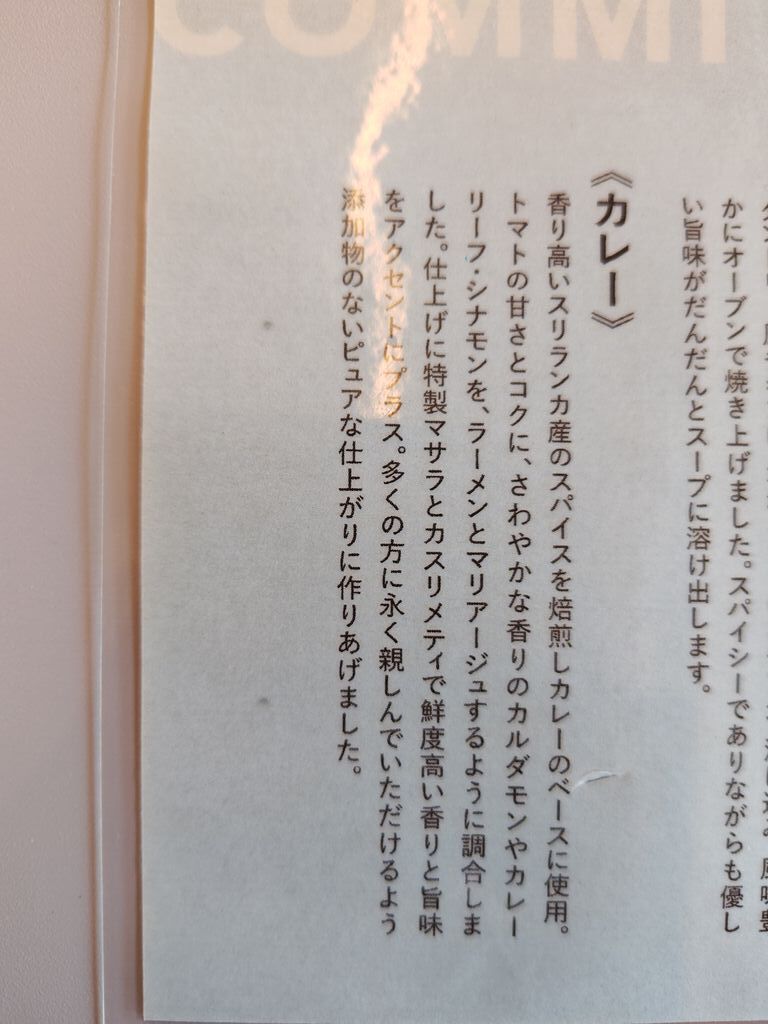 COMMI
かにオーブンで焼き上げました。スパイシーでありながらも優し
い旨味がだんだんとスープに溶け出します。
《カレー》
香り高いスリランカ産のスパイスを焙煎しカレーのベースに使用。
トマトの甘さとコクに、さわやかな香りのカルダモンやカレー
リーフ・シナモンを、ラーメンとマリアージュするように調合しま
した。仕上げに特製マサラとカスリメティで鮮度高い香りと旨味
をアクセントにプラス。多くの方に永く親しんでいただけるよう
添加物のないピュアな仕上がりに作りあげました。